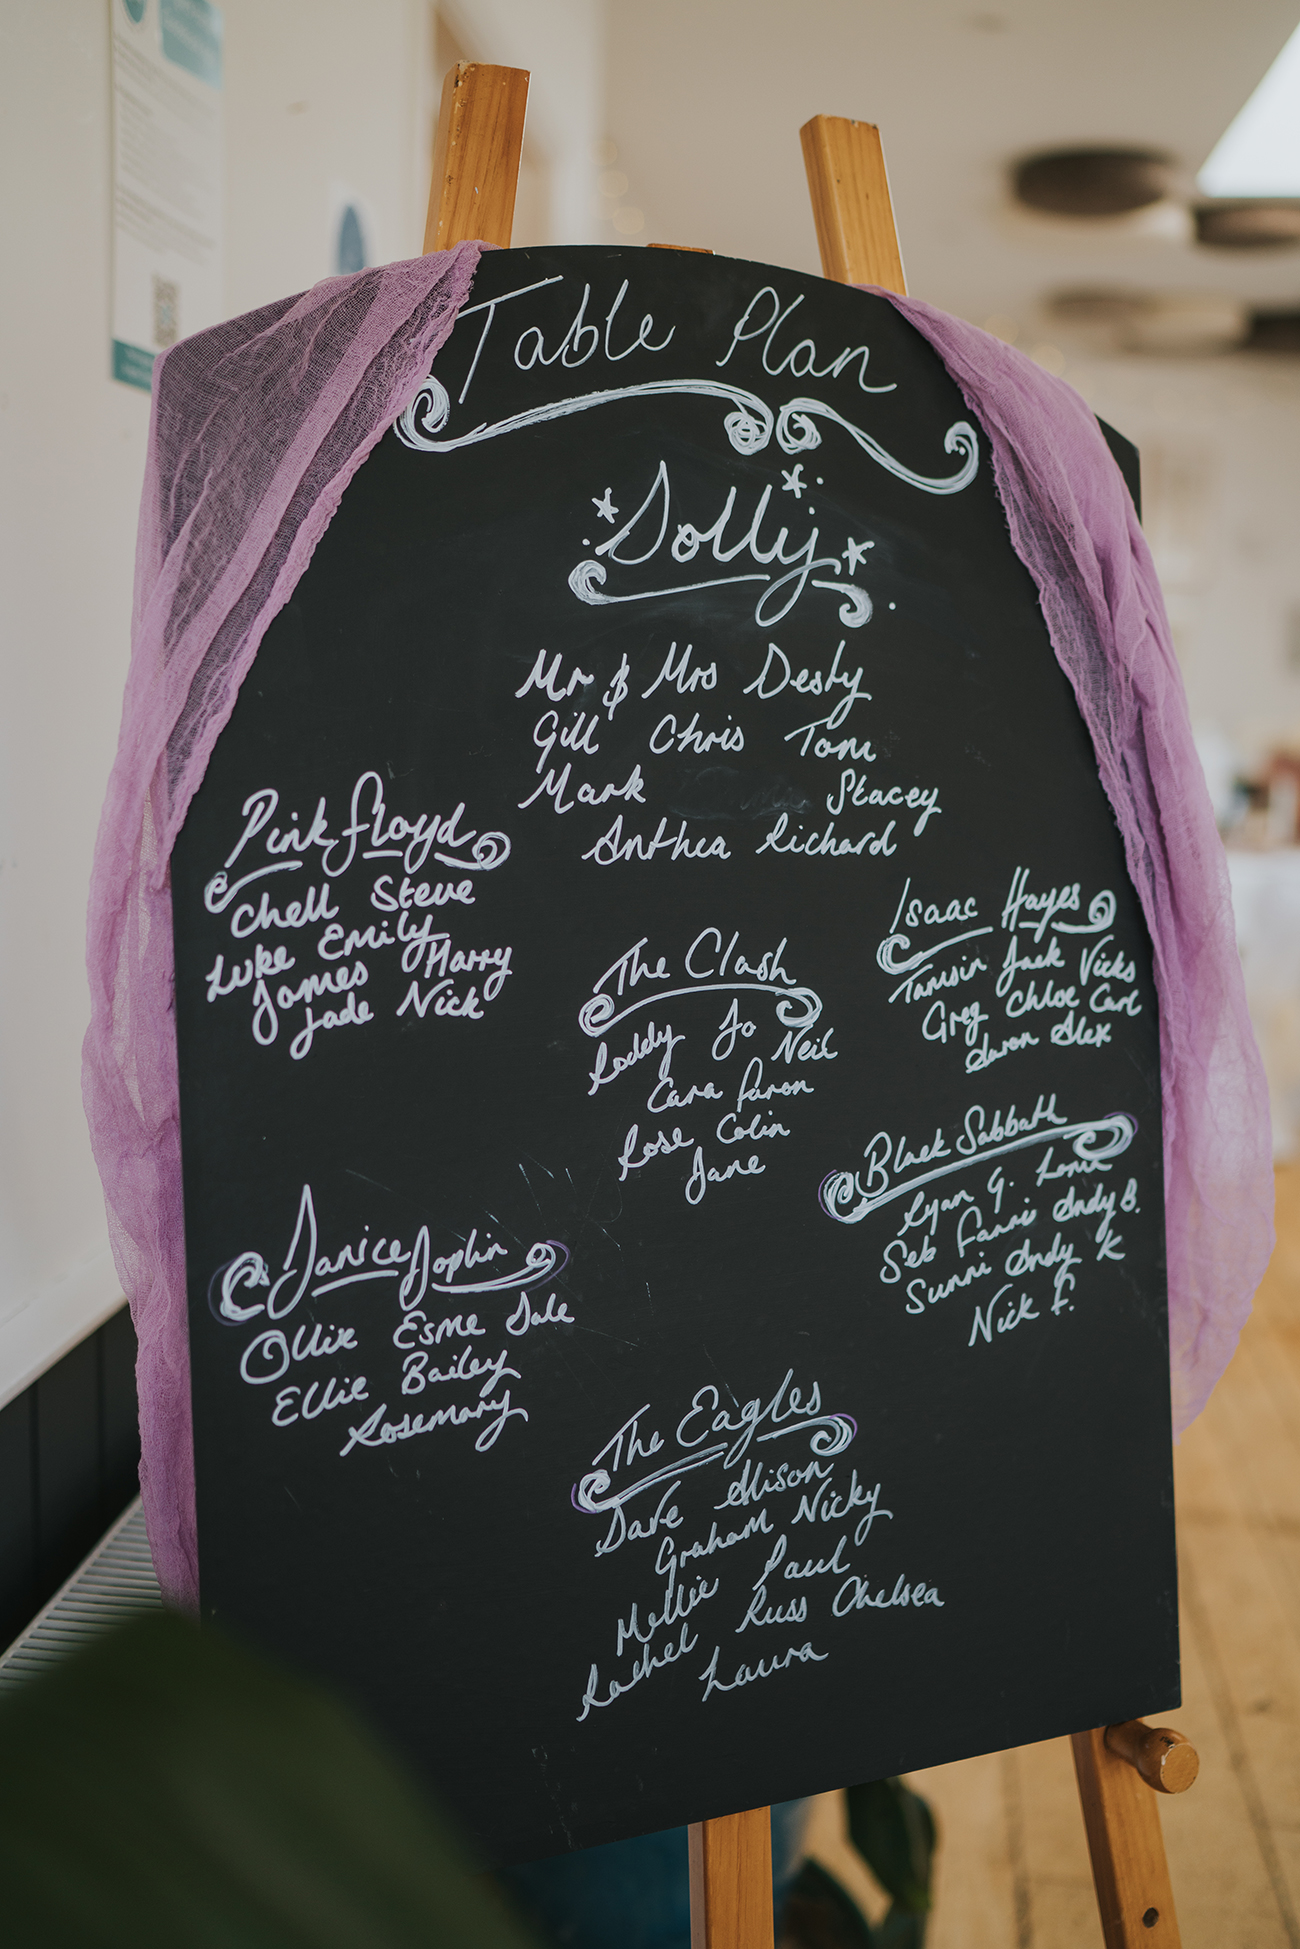 Table Plan
Dolly
Mr & Mrs Desby
Gill Chris Tom
Mark Stacey
Anthea Richard
Pink Floyd
Chell Steve
Luke Emily
James Harry
Jade Nick
The Clash
Roddy Jo Neil
Cara Paron
Rose Colin
Jane
Isaac Hayes
Tamsin Jack Vicks
Greg Chloe Carl
Aaron Alex
Janice Joplin
Ollie Esme Dale
Ellie Bailey
Rosemary
Black Sabbath
Ryan G.
Seb Andy B.
Sunni Andy K
Nick F.
The Eagles
Dave Alison
Graham Nicky
Mellie Paul
Rachel Russ Chelsea
Laura